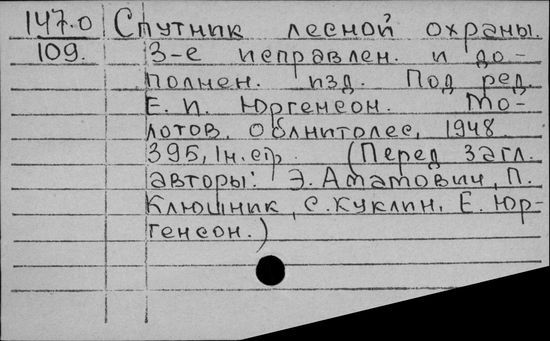 147.0 Спутник лесной охраны.
109. 3-е исправлен. и до-
полнен. изд. Под ред.
Е. И. Юргенсон. Мо-
лотов. Облнитолес, 1948.
395, Iн. стр. (Перед загл.
авторы: Э. Аматович, П.
Клюшник, С. Куклин, Е. Юр-
генсон.)